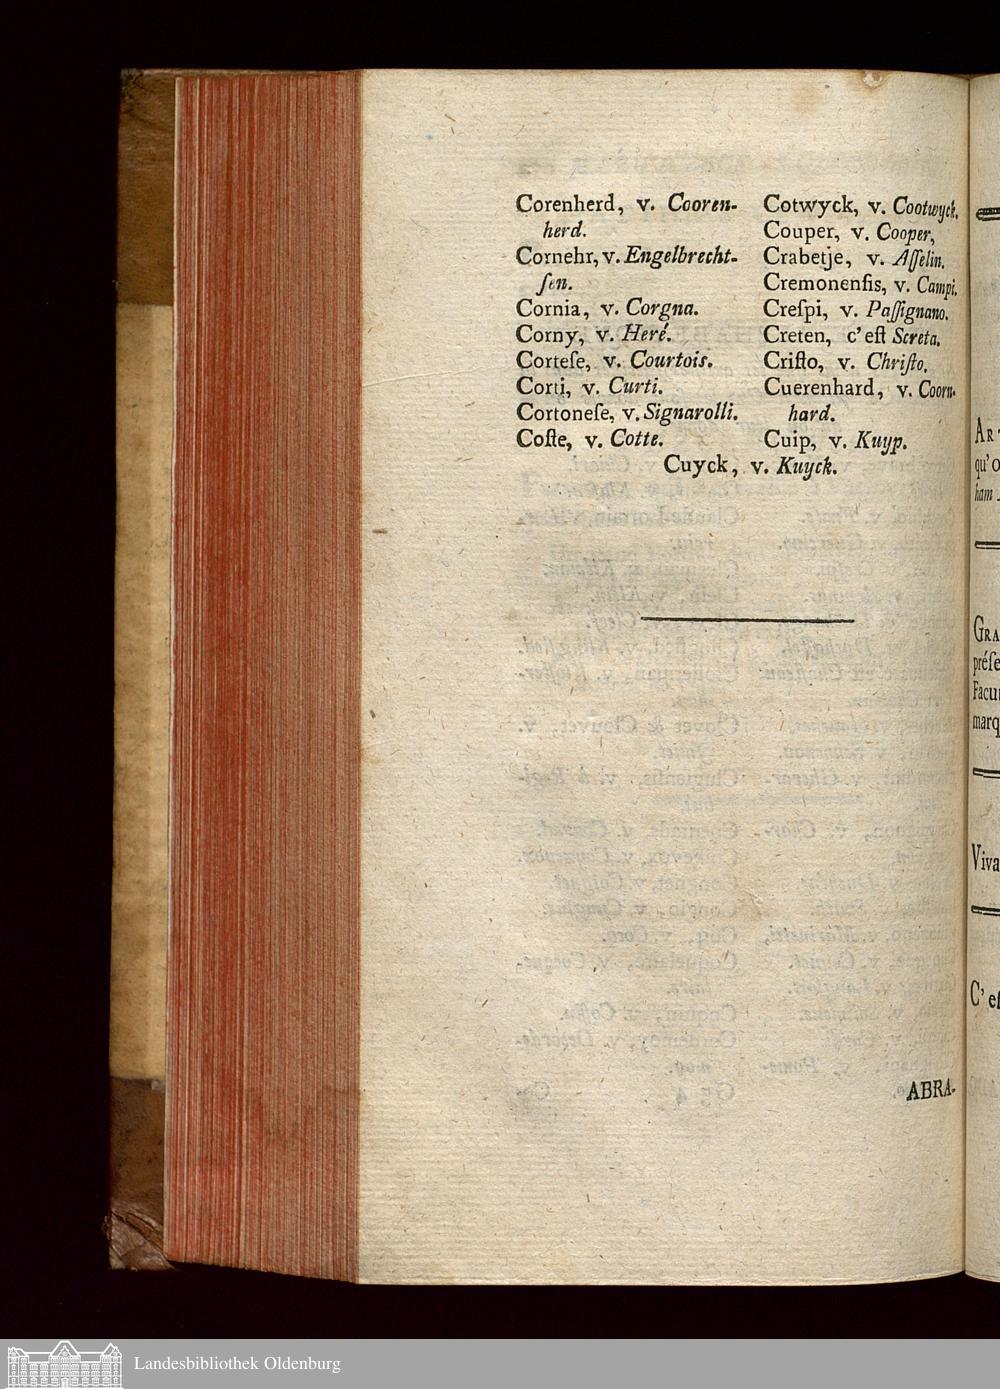 Corenherd, v. Cooren-
herd.
Cornehr, v. Engelbrecht-
ſen.
Cornia, v. Corgna.
Corny, v. Heré.
Corteſe, v. Courtois.
Corti, v. Curti.
Cortoneſe, v. Signarolli.
Coſte, v. Cotte.
Cotwyck, v. Cootwyck.
Couper, v. Cooper,
Crabetje, v. Aſſelin.
Cremonenſis, v. Campi.
Creſpi, v. Paſſignano.
Creten, c'eſt Screta.
Criſto, v. Chriſto.
Cuerenhard, v. Coorn-
hard.
Cuip, v. Kuyp.
Cuyck, v. Kuyck.
ABRA-
qu'o
ham
GRA
préſe
Facu
marq
Viva
C' eſ
Landesbibliothek Oldenburg